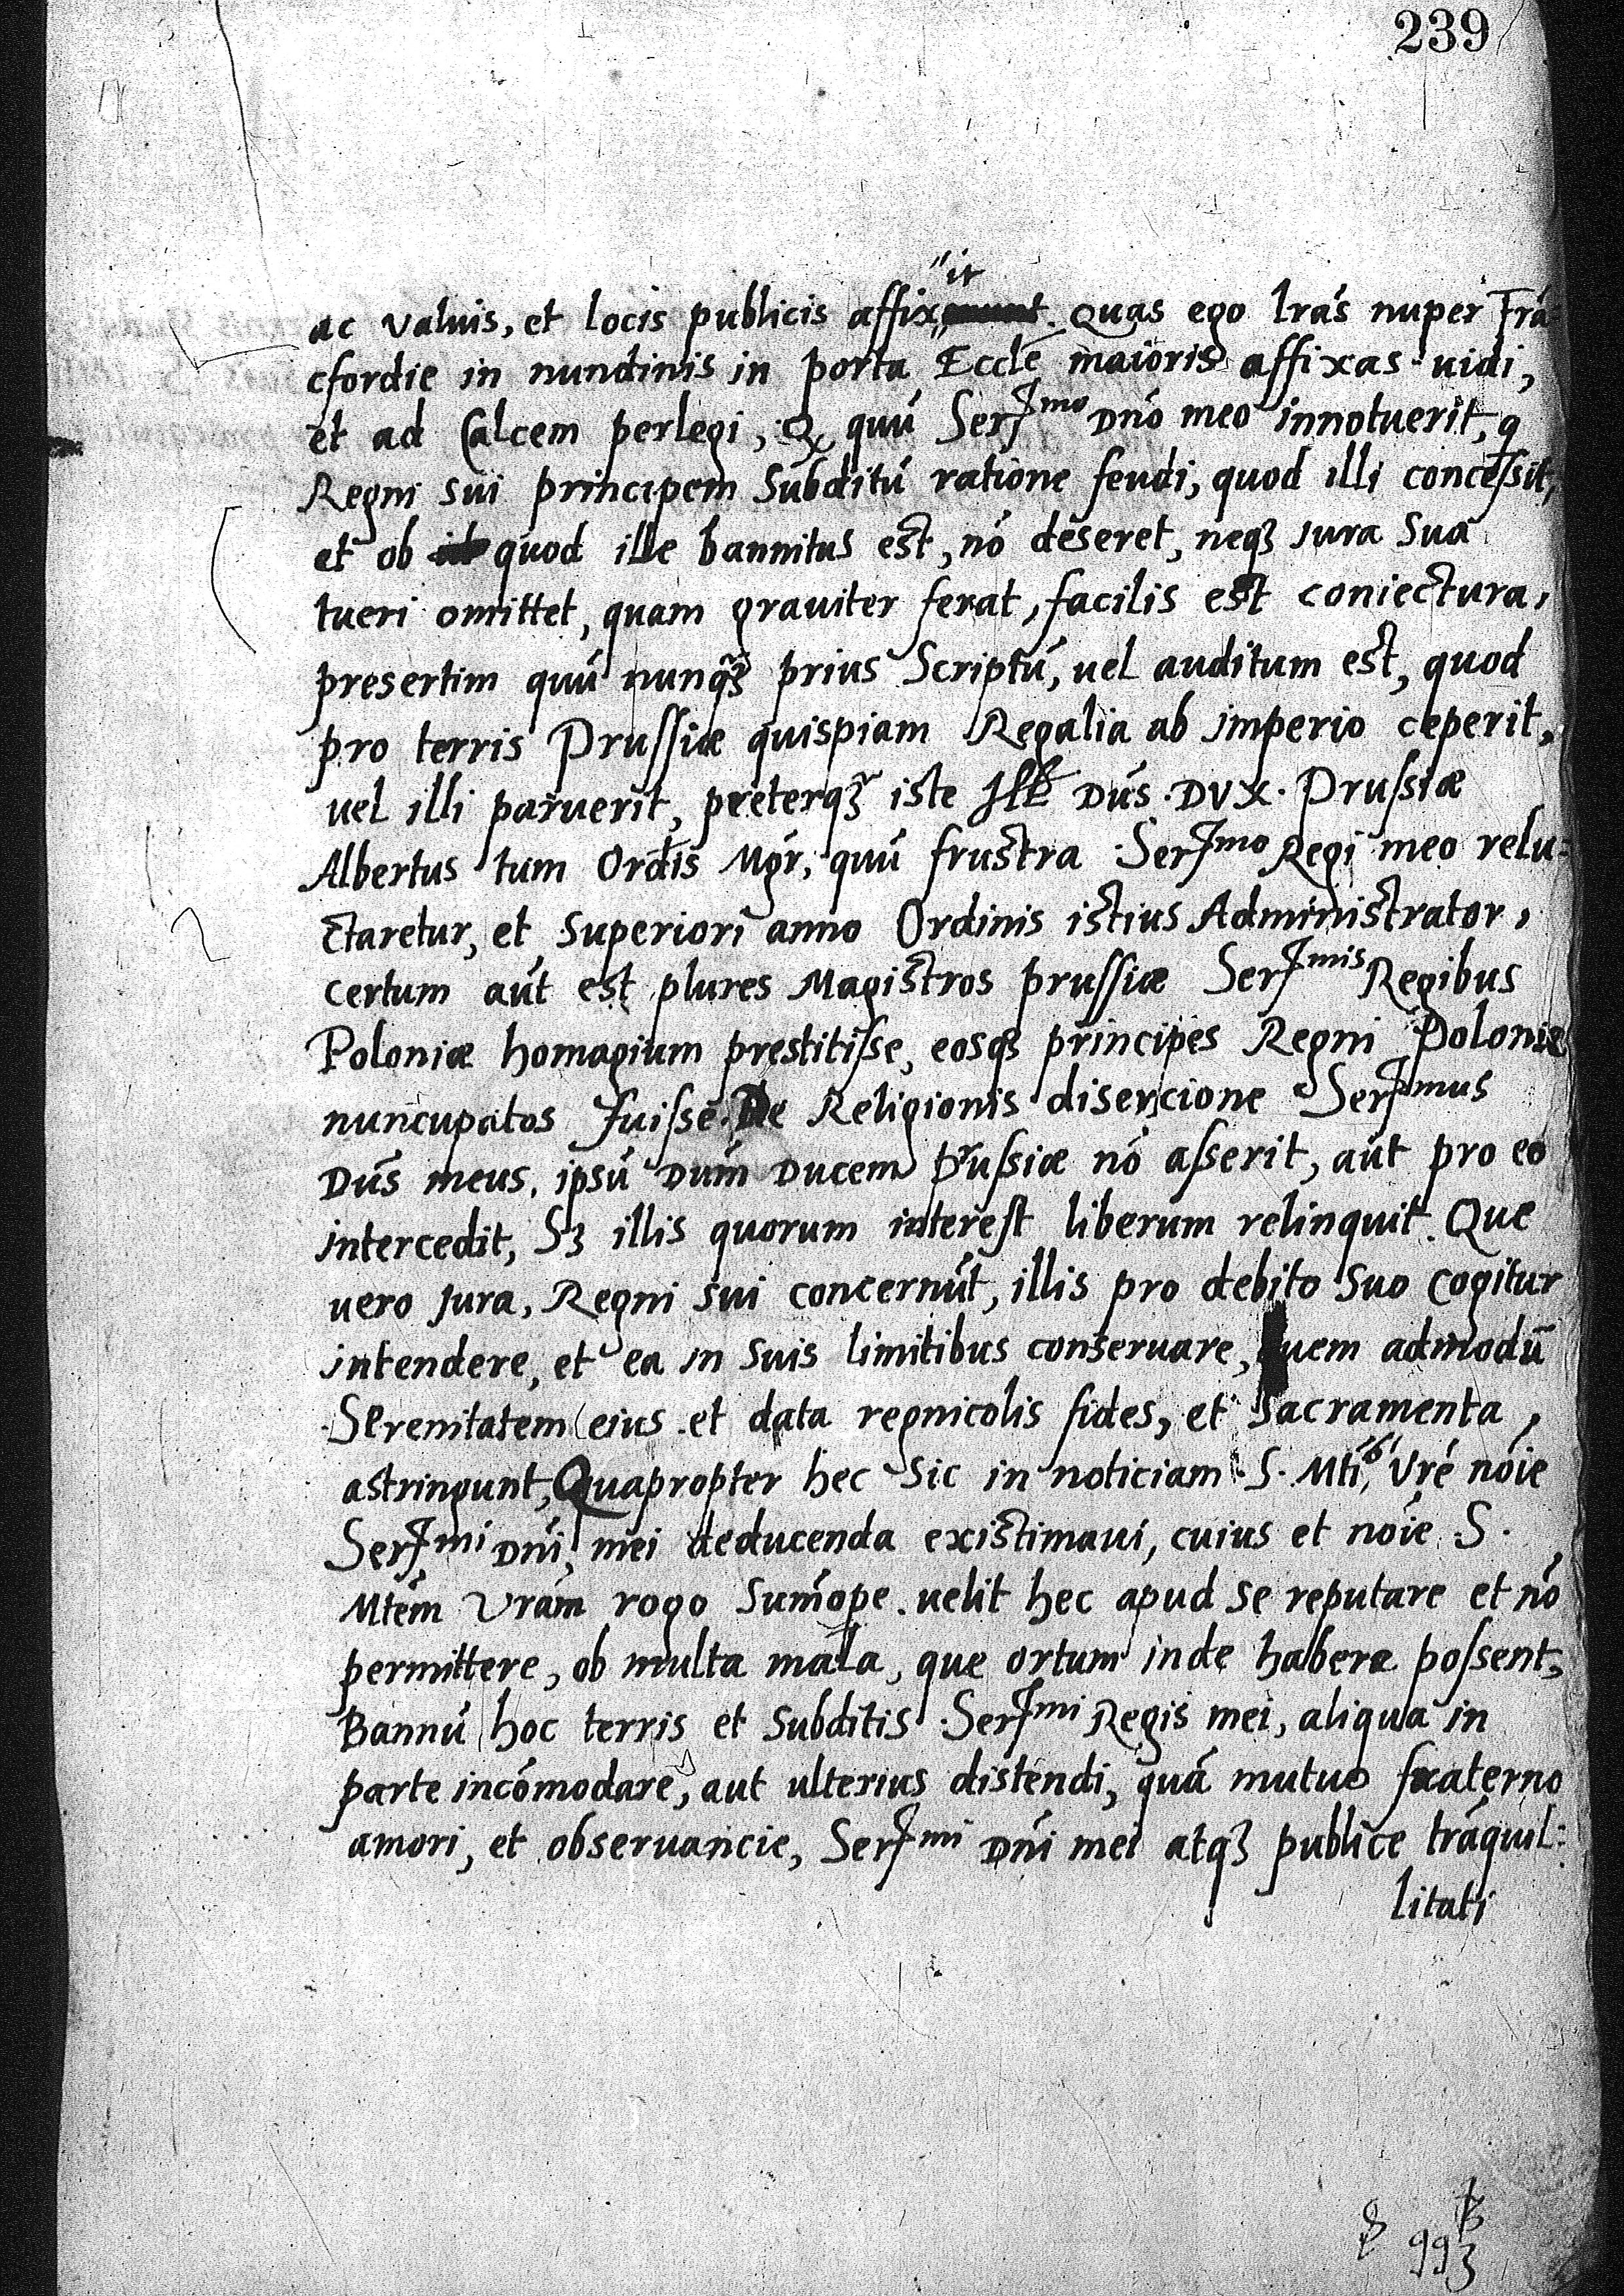 239
ac valuis, et locis publicis affixit. Quas ego lrás nuper Frá-
cfordie in nundinis in porta Eccłe maioris affixas uidi,
et ad Calcem perlegi, Q quú Serᵐᵒ Dnó meo innotuerit, q
Regni sui principem Subditú ratione feudi, quod illi concessit,
et ob quod ille bannitus est, nó deseret, neqꝫ iura Sua
tueri omittet, quam grauiter ferat, facilis est coniectura,
presertim quú nunqꝫ prius Scriptú, uel auditum est, quod
pro terris Prussiæ quispiam Regalia ab imperio ceperit,
uel illi paruerit, preterqꝫ iste Illᵉ Dús. DVX. Prussiæ
Albertus tum Ordis Mgr, quú frustra Serᵐᵒ Regi meo relu-
ctaretur, et Superiori anno Ordinis istius Administrator,
certum aút est plures Magistros prussiæ Serᵐⁱˢ Regibus
Poloniæ homagium prestitisse, eosqꝫ principes Regni Poloniæ
nuncupatos fuisse. De Religionis disercione Serᵐᵘˢ
Dús meus, ipsú Dúm Ducem Prussiæ nó asserit, aút pro eo
intercedit, Sꝫ illis quorum interest liberum relinquit. Que
uero Jura, Regni sui concernút, illis pro debito Suo cogitur
intendere, et ea in Suis limitibus conseruare, quem admodū
Serenitatem eius et data regnicolis fides, et Sacramenta,
astringunt, Quapropter hec Sic in noticiam S. Mtiᵇ, Vré nóie
Serᵐⁱ Dni, mei deducenda existimaui, cuius et nóie S.
Mtém Vrám rogo Sumópe. uelit hec apud se reputare et nó
permittere, ob multa mala, que ortum inde habere possent,
Bannú hoc terris et Subditis Serᵐⁱ Regis mei, aliqua in
parte incómodare, aut ulterius distendi, quá mutuo fraterno
amori, et obseruancie, Serᵐⁱ Dni mei atqꝫ publice tráquil:
litati